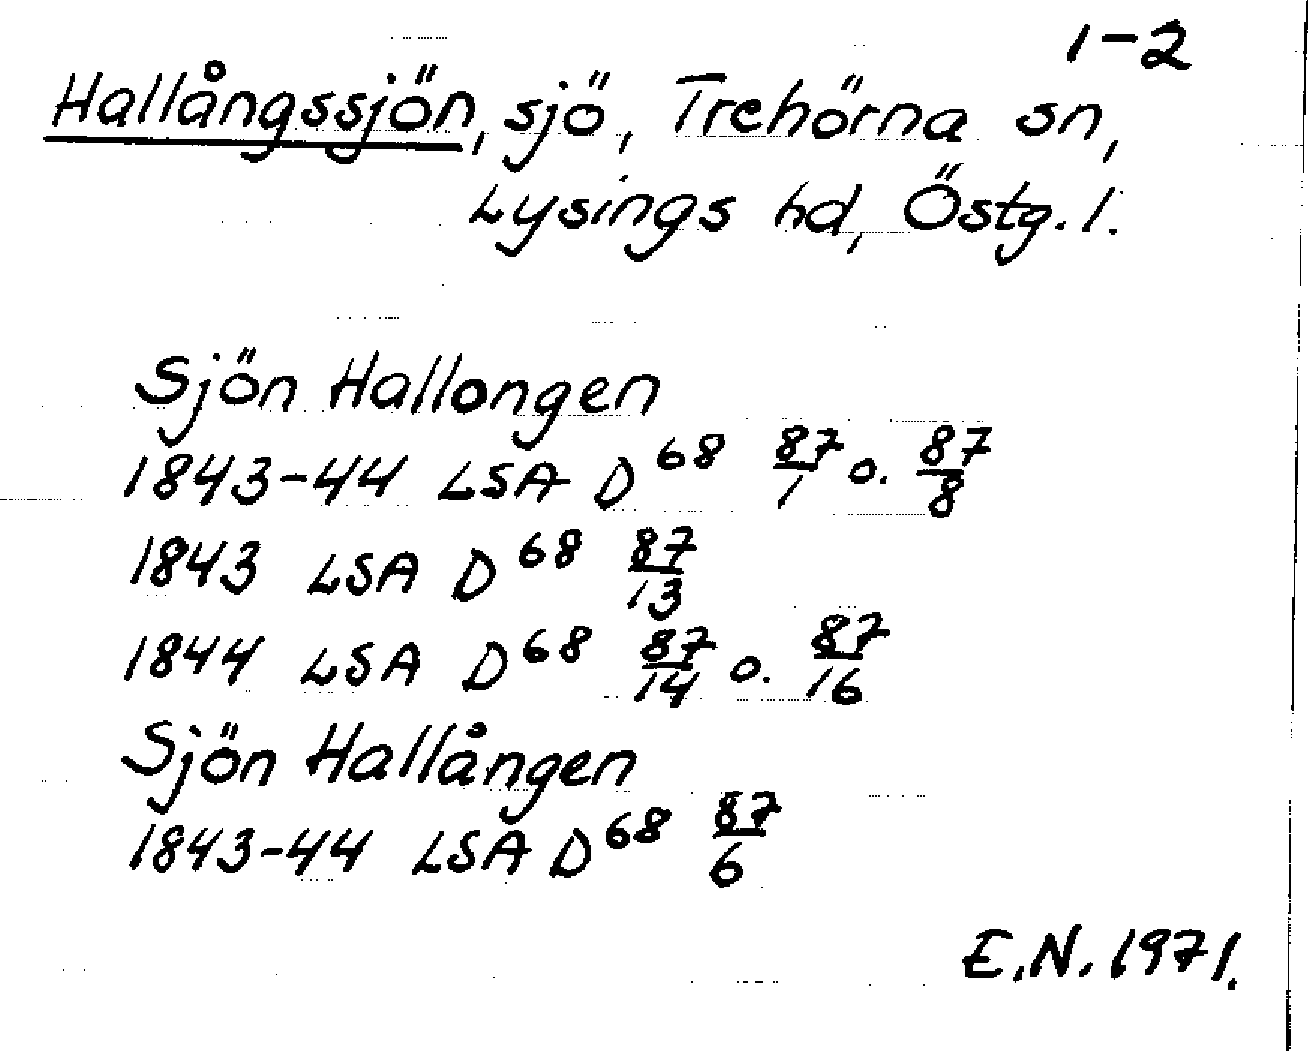 1-2
Hallångssjön, sjö, Trehörna sn,
Lysings hd, Östg. l.
Sjön Hallongen
1843-44 LSA D⁶⁸ 87/1 o. 87/8
1843 LSA D⁶⁸ 87/13
1844 LSA D⁶⁸ 87/14 o. 87/16
Sjön Hallången
1843-44 LSA D⁶⁸ 87/6
E.N. 1971.